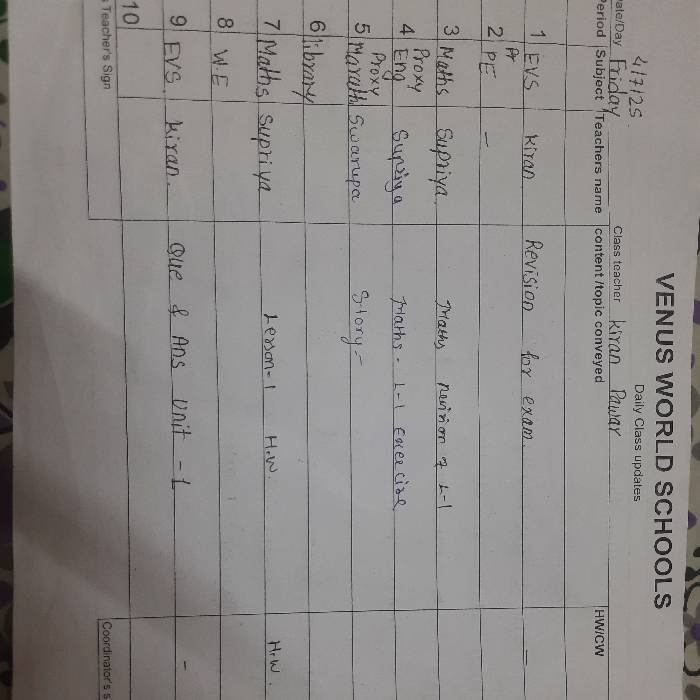 VENUS WORLD SCHOOLS
Daily Class updates
4/7/25
Date/Day Friday Class teacher Kiran Pawar
Period Subject Teachers name content /topic conveyed HW/CW
1 EVS Kiran Revision for exam. -
2 PE -
3 Maths Supriya. Maths revision of L-1
Proxy
4 Eng Supriya Maths - L-1 exercise
Proxy
5 Marathi Swarupa Story -
6 library
7 Maths Supriya Lesson-1 H.W. H.W.
8 W.E
9 EVS. Kiran. Que & Ans Unit - 1 -
10
Teacher's Sign Coordinator's s